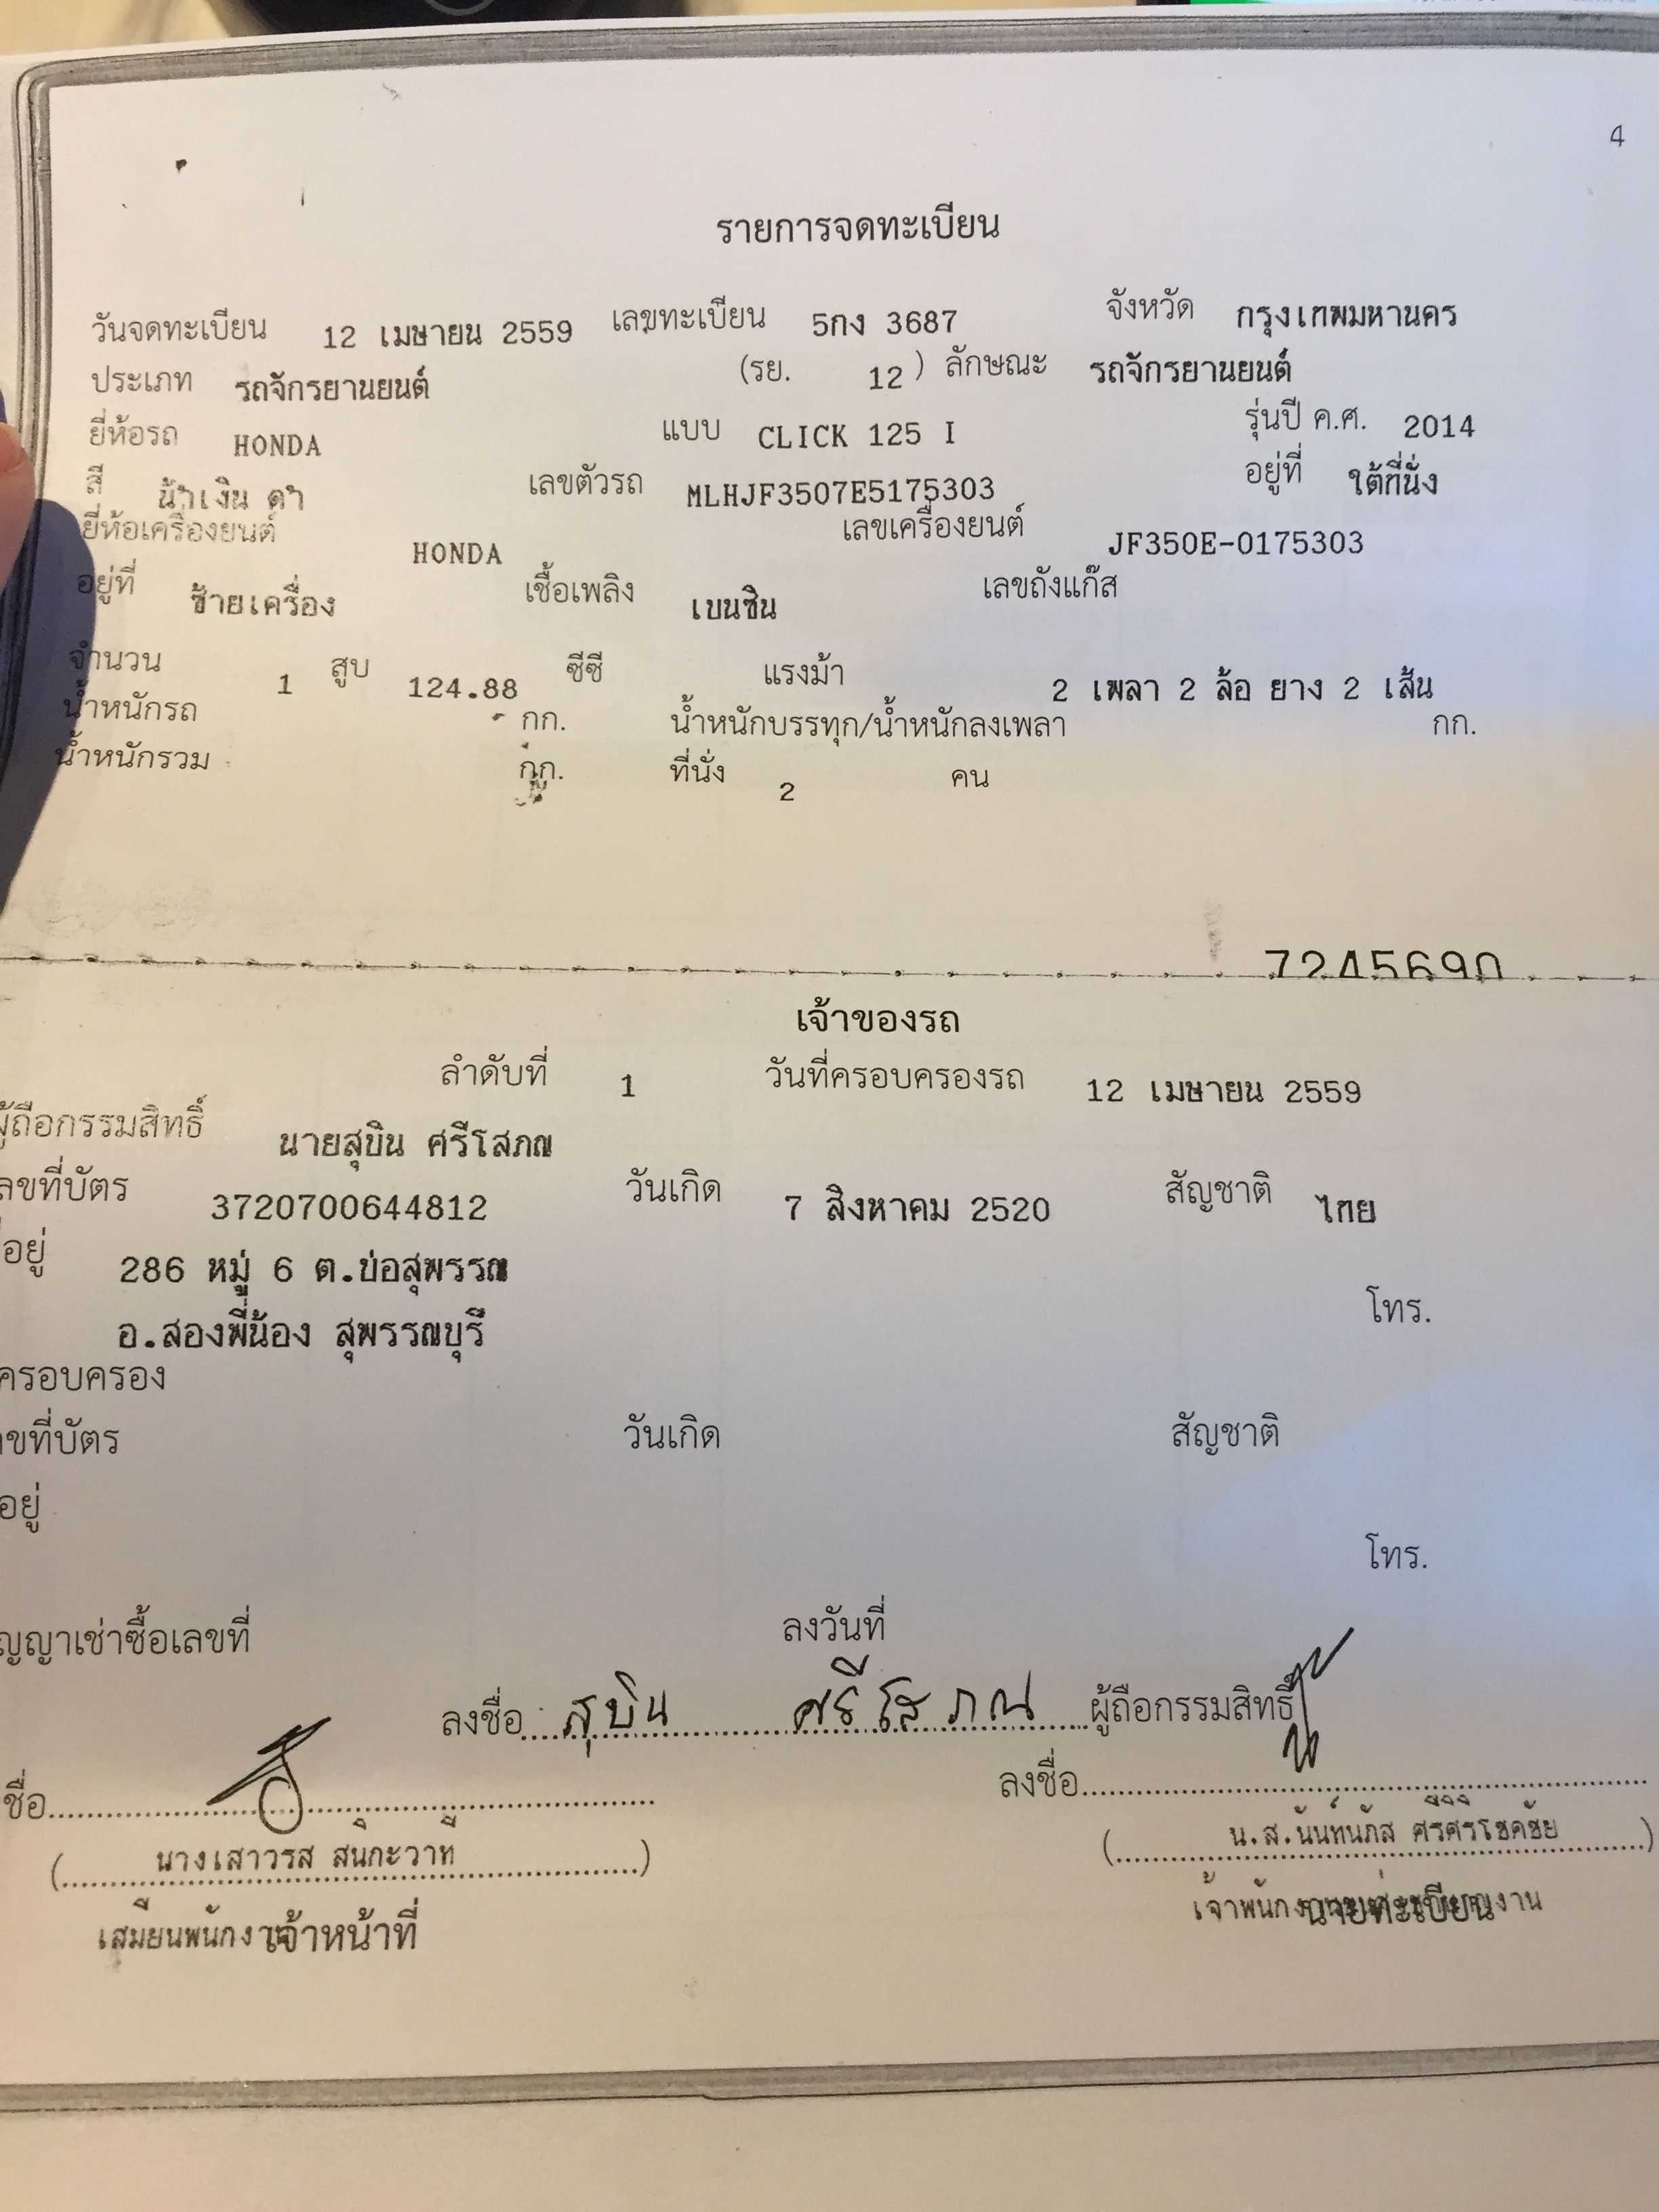 4
รายการจดทะเบียน
วันจดทะเบียน 12 เมษายน 2559 เลขทะเบียน 5กง 3687 จังหวัด กรุงเทพมหานคร
ประเภท รถจักรยานยนต์ (รย. 12 ) ลักษณะ รถจักรยานยนต์
ยี่ห้อรถ HONDA แบบ CLICK 125 I รุ่นปี ค.ศ. 2014
สี น้ำเงิน ดำ เลขตัวรถ MLHJF3507E5175303 อยู่ที่ ใต้ที่นั่ง
ยี่ห้อเครื่องยนต์ HONDA เลขเครื่องยนต์ JF350E-0175303
อยู่ที่ ซ้ายเครื่อง เชื้อเพลิง เบนซิน เลขถังแก๊ส
จำนวน 1 สูบ 124.88 ซีซี แรงม้า 2 เพลา 2 ล้อ ยาง 2 เส้น
น้ำหนักรถ กก. น้ำหนักบรรทุก/น้ำหนักลงเพลา กก.
น้ำหนักรวม กก. ที่นั่ง 2 คน
7245690
เจ้าของรถ
ลำดับที่ 1 วันที่ครอบครองรถ 12 เมษายน 2559
ผู้ถือกรรมสิทธิ์ นายสุบิน ศรีโสภณ
ลขที่บัตร 3720700644812 วันเกิด 7 สิงหาคม 2520 สัญชาติ ไทย
อยู่ 286 หมู่ 6 ต.บ่อสุพรรณ
อ.สองพี่น้อง สุพรรณบุรี โทร.
ครอบครอง
ขที่บัตร วันเกิด สัญชาติ
อยู่
โทร.
ญญาเช่าซื้อเลขที่ ลงวันที่
ลงชื่อ สุบิน ศรีโสภณ ผู้ถือกรรมสิทธิ์
ชื่อ ลงชื่อ
(นางเสาวรส สนิกะวาที) (น.ส.นันท์นภัส)
เสมียนพนักงาน เจ้าหน้าที่ นายทะเบียน